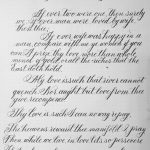 If ever two were one, then surely
we. If ever man were loved by wife,
then thee;
If ever wife was happy in a
man, compare with me ye women if you
can. I prize thy love more than whole
mines of gold or all the riches that the
East doth hold.
My love is such that rivers cannot
quench, Nor ought but love from thee
give recompense.
Thy love is such I can no way repay
The heavens reward thee manifold, I pray
Then while we live, in love let's so persevere